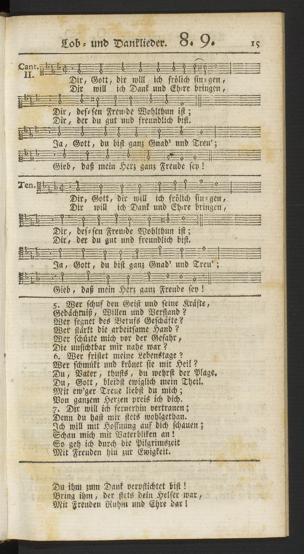 Lob- und Danklieder. 8. 9. 15
Cant. II.
Dir, Gott, dir will ich frölich sin-gen,
Dir will ich Dank und Eh-re bringen,
Dir, des-sen Freu-de Wohlthun ist;
Dir, der du gut und freundlich bist.
Ja, Gott, du bist ganz Gnad' und Treu';
Gieb, daß mein Herz ganz Freude sey!
Ten.
Dir, Gott, dir will ich frölich sin-gen,
Dir will ich Dank und Eh-re bringen,
Dir, des-sen Freu-de Wohlthun ist;
Dir, der du gut und freundlich bist.
Ja, Gott, du bist ganz Gnad' und Treu';
Gieb, daß mein Herz ganz Freude sey!
5. Wer schuf den Geist und seine Kräfte,
Gedächtniß, Willen und Verstand?
Wer segnet des Berufs Geschäfte?
Wer stärkt die arbeitsame Hand?
Wer schützt mich vor der Gefahr,
Die unsichtbar mir nahe war?
6. Wer fristet meine Lebenstage?
Wer schmückt und krönet sie mit Heil?
Du, Vater, thusts, du wehrst der Plage,
Du, Gott, bleibst ewiglich mein Theil.
Mit ew'ger Treue liebst du mich;
Von ganzem Herzen preis ich dich.
7. Dir will ich fernerhin vertrauen;
Denn du hast mir stets wohlgethan.
Ich will mit Hoffnung auf dich schauen;
Schau mich mit Vaterblicken an!
So geh ich durch die Pilgrimszeit
Mit Freuden hin zur Ewigkeit.
Du ihm zum Dank verpflichtet bist!
Bring ihm, der stets dein Helfer war,
Mit Freuden Ruhm und Ehre dar!